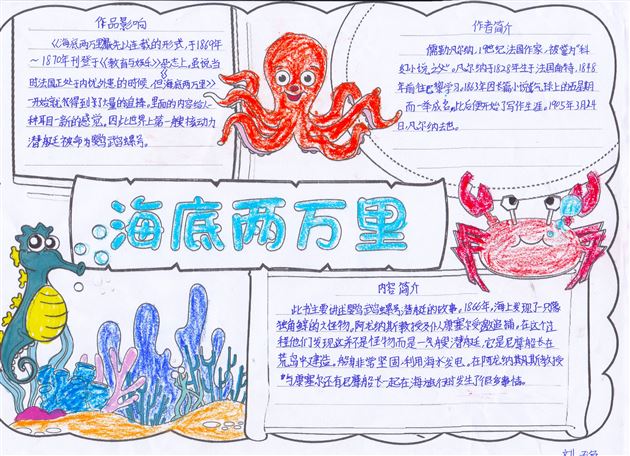 作品影响
《海底两万里》最先以连载的形式，于1869年
~1870年刊登于《教育与娱乐》杂志上，虽说当
时法国正处于内忧外患的时候，但《海底两万里》
一开始就获得到了大量的追捧。里面的内容给人
种耳目一新的感觉，因此世界上第一艘核动力
潜艇被命为鹦鹉螺号。
作者简介
儒勒凡尔纳，19世纪法国作家，被誉为"科
幻小说之父"。凡尔纳于1828年生于法国南特，1848
年前往巴黎学习。1863年因长篇小说气球上的五星期
而一举成名。此后便开始了写作生涯。1905年3月24
日，凡尔纳去世。
海底两万里
内容简介
此书主要讲述鹦鹉螺潜艇的故事。1866年，海上发现了一只像
独角鲸的大怪物。阿龙纳斯教授及仆人康塞尔受邀追捕。在这个过
程他们发现这并不是怪物而是一艘潜艇，它是尼摩船长在
荒岛中建造。船身非常坚固，利用海水发电。在阿龙纳斯教授
与康塞尔还有尼摩船长一起在海底旅行时发生了很多事情。
刘